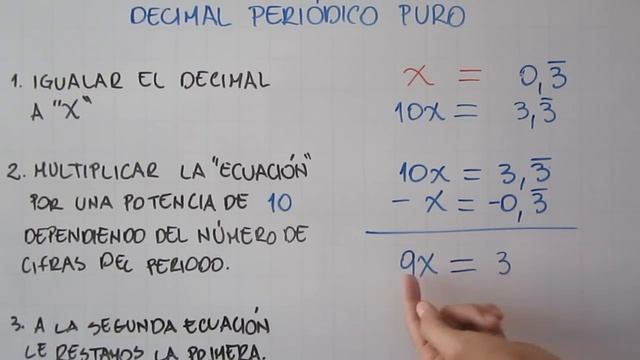 DECIMAL PERIÓDICO PURO
1. IGUALAR EL DECIMAL
A "X"
x = 0,3̅
10x = 3,3̅
2. MULTIPLICAR LA "ECUACIÓN"
POR UNA POTENCIA DE 10
DEPENDIENDO DEL NÚMERO DE
CIFRAS DEL PERIODO.
10x = 3,3̅
- x = -0,3̅
9x = 3
3. A LA SEGUNDA ECUACIÓN
LE RESTAMOS LA PRIMERA.